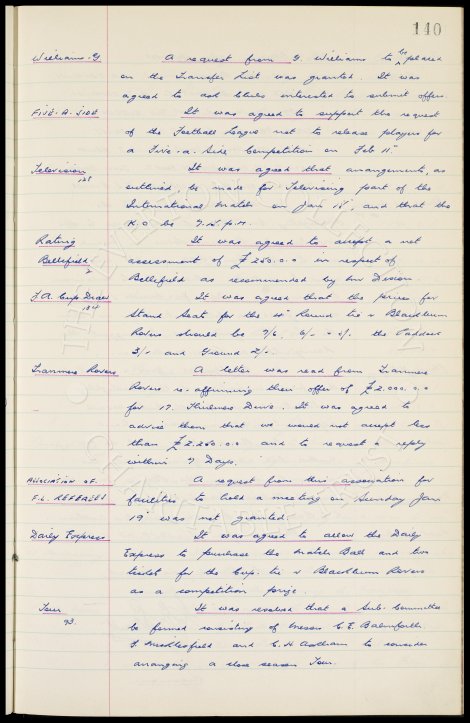 140
Williams. G. A request from G. Williams to be placed
on the Transfer List was granted. It was
agreed to ask Clubs interested to submit offers
FIVE. A. SIDE It was agreed to support the request
of the Football League not to release players for
a Five-a-Side Competition on Feb 11th
Television It was agreed that arrangements, as
outlined, be made for Televising part of the
International match on Jan and that the
K.O be p.m.
Rating It was agreed to accept a net
Bellefield assessment of £250.0.0 in respect of
Bellefield as recommended by
F.A. Cup Draw It was agreed that the prices for
Stand Seats for the 4th Round tie v Blackburn
Rovers should be 7/6, 6/- the Paddock
3/- and Ground 2/-.
Tranmere Rovers A letter was read from Tranmere
Rovers re-affirming their offer of £2,000.0.0
for Dunc. It was agreed to
advise them that we would not accept less
than £2.250.0.0 and to request a reply
within 7 Days.
ASSOCIATION OF A request from this association for
F.L. REFEREES facilities to hold a meeting on Sunday Jan
19th was not granted.
Daily Express It was agreed to allow the Daily
Express to purchase the match Ball and two
tickets for the Cup-tie v Blackburn Rovers
as a competition prize.
Tour It was resolved that a Sub-Committee
be formed consisting of Messrs C.E. Balmforth
F. Micklesfield and C.H Askham to consider
arranging a close season Tour.